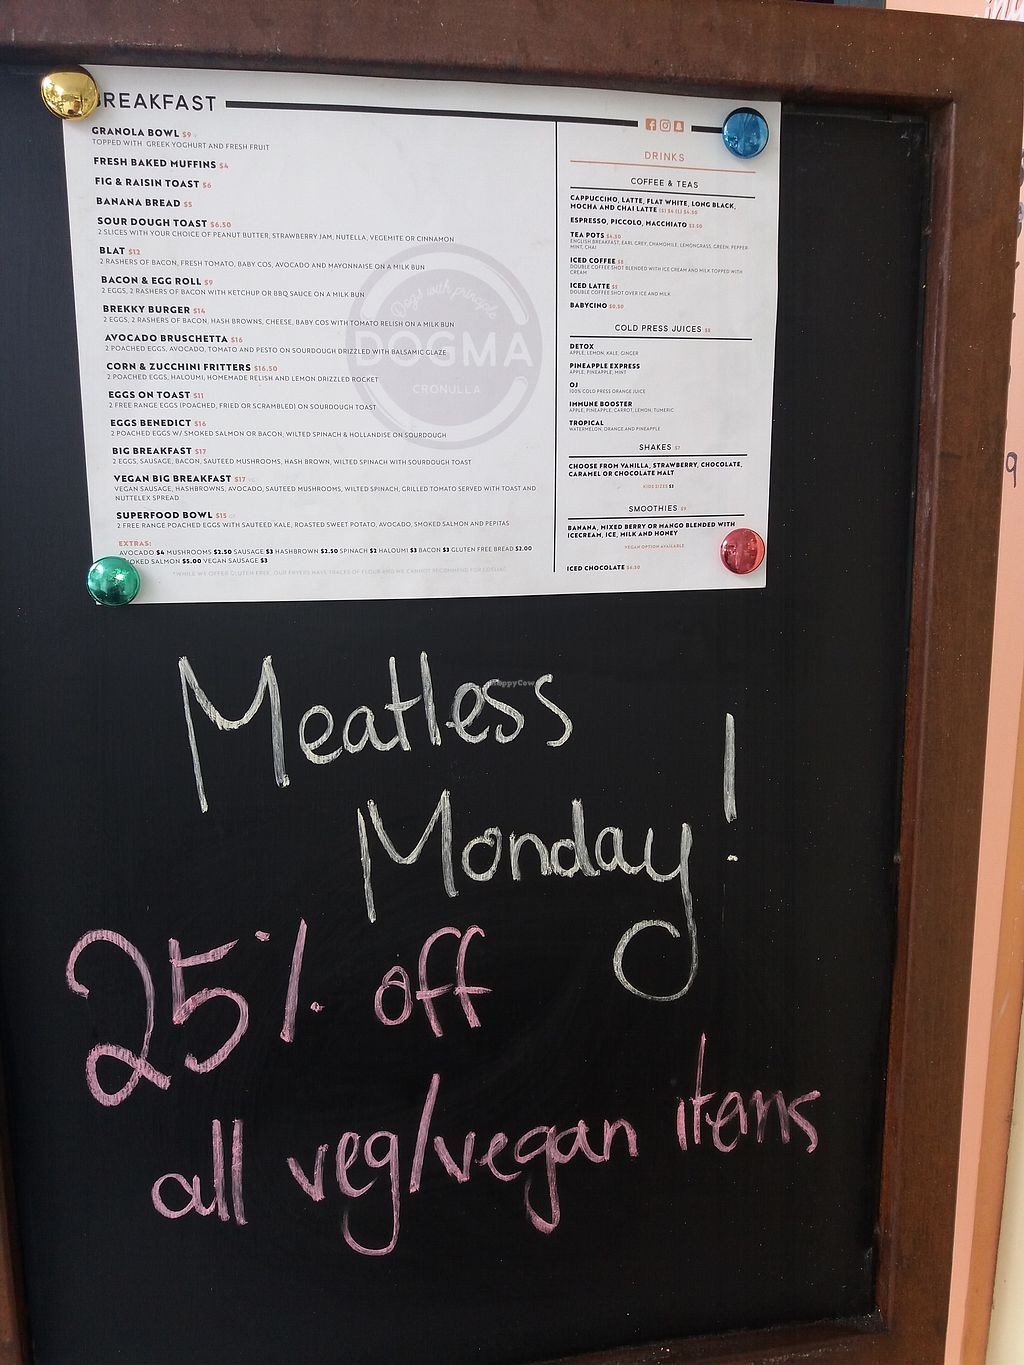 BREAKFAST
GRANOLA BOWL $9
TOPPED WITH GREEK YOGHURT AND FRESH FRUIT
FRESH BAKED MUFFINS $4
FIG & RAISIN TOAST $6
BANANA BREAD $5
SOUR DOUGH TOAST $6.50
2 SLICES WITH YOUR CHOICE OF PEANUT BUTTER, STRAWBERRY JAM, NUTELLA, VEGEMITE OR CINNAMON
BLAT $12
2 RASHERS OF BACON, FRESH TOMATO, BABY COS, AVOCADO AND MAYONNAISE ON A MILK BUN
BACON & EGG ROLL $9
2 EGGS, 2 RASHERS OF BACON WITH KETCHUP OR BBQ SAUCE ON A MILK BUN
BREKKY BURGER $14
2 EGGS, 2 RASHERS OF BACON, HASH BROWNS, CHEESE, BABY COS WITH TOMATO RELISH ON A MILK BUN
AVOCADO BRUSCHETTA $16
2 POACHED EGGS, AVOCADO, TOMATO AND PESTO ON SOURDOUGH DRIZZLED WITH BALSAMIC GLAZE
CORN & ZUCCHINI FRITTERS $16.50
2 POACHED EGGS, HALOUMI, HOMEMADE RELISH AND LEMON DRIZZLED ROCKET
EGGS ON TOAST $11
2 FREE RANGE EGGS (POACHED, FRIED OR SCRAMBLED) ON SOURDOUGH TOAST
EGGS BENEDICT $16
2 POACHED EGGS W/ SMOKED SALMON OR BACON, WILTED SPINACH & HOLLANDISE ON SOURDOUGH
BIG BREAKFAST $17
2 EGGS, SAUSAGE, BACON, SAUTEED MUSHROOMS, HASH BROWN, WILTED SPINACH WITH SOURDOUGH TOAST
VEGAN BIG BREAKFAST $17
VEGAN SAUSAGE, HASHBROWNS, AVOCADO, SAUTEED MUSHROOMS, WILTED SPINACH, GRILLED TOMATO SERVED WITH TOAST AND
NUTTELEX SPREAD
SUPERFOOD BOWL $15
2 FREE RANGE POACHED EGGS WITH SAUTEED KALE, ROASTED SWEET POTATO, AVOCADO, SMOKED SALMON AND PEPITAS
EXTRAS:
AVOCADO $4 MUSHROOMS $2.50 SAUSAGE $3 HASHBROWN $2.50 SPINACH $2 HALOUMI $3 BACON $3 GLUTEN FREE BREAD $2.00
SMOKED SALMON $5.00 VEGAN SAUSAGE $3
*WHILE WE OFFER GLUTEN FREE, OUR FRYERS HAVE TRACES OF FLOUR AND WE CANNOT RECOMMEND FOR COELIAC
DOGMA
CRONULLA
DRINKS
COFFEE & TEAS
CAPPUCCINO, LATTE, FLAT WHITE, LONG BLACK,
MOCHA AND CHAI LATTE (S) $4 (L) $4.50
ESPRESSO, PICCOLO, MACCHIATO $3.50
TEA POTS $4.50
ENGLISH BREAKFAST, EARL GREY, CHAMOMILE, LEMONGRASS, GREEN, PEPPER-
MINT, CHAI
ICED COFFEE $8
DOUBLE COFFEE SHOT BLENDED WITH ICE CREAM AND MILK TOPPED WITH
CREAM
ICED LATTE $5
DOUBLE COFFEE SHOT OVER ICE AND MILK
BABYCINO $0.50
COLD PRESS JUICES $8
DETOX
APPLE, LEMON, KALE, GINGER
PINEAPPLE EXPRESS
APPLE, PINEAPPLE, MINT
OJ
100% COLD PRESS ORANGE JUICE
IMMUNE BOOSTER
APPLE, PINEAPPLE, CARROT, LEMON, TUMERIC
TROPICAL
WATERMELON, ORANGE AND PINEAPPLE
SHAKES $7
CHOOSE FROM VANILLA, STRAWBERRY, CHOCOLATE,
CARAMEL OR CHOCOLATE MALT
KIDS SIZES $5
SMOOTHIES $9
BANANA, MIXED BERRY OR MANGO BLENDED WITH
ICECREAM, ICE, MILK AND HONEY
VEGAN OPTION AVAILABLE
ICED CHOCOLATE $6.50
Meatless
Monday!
25% off
all veg/vegan items
HappyCow